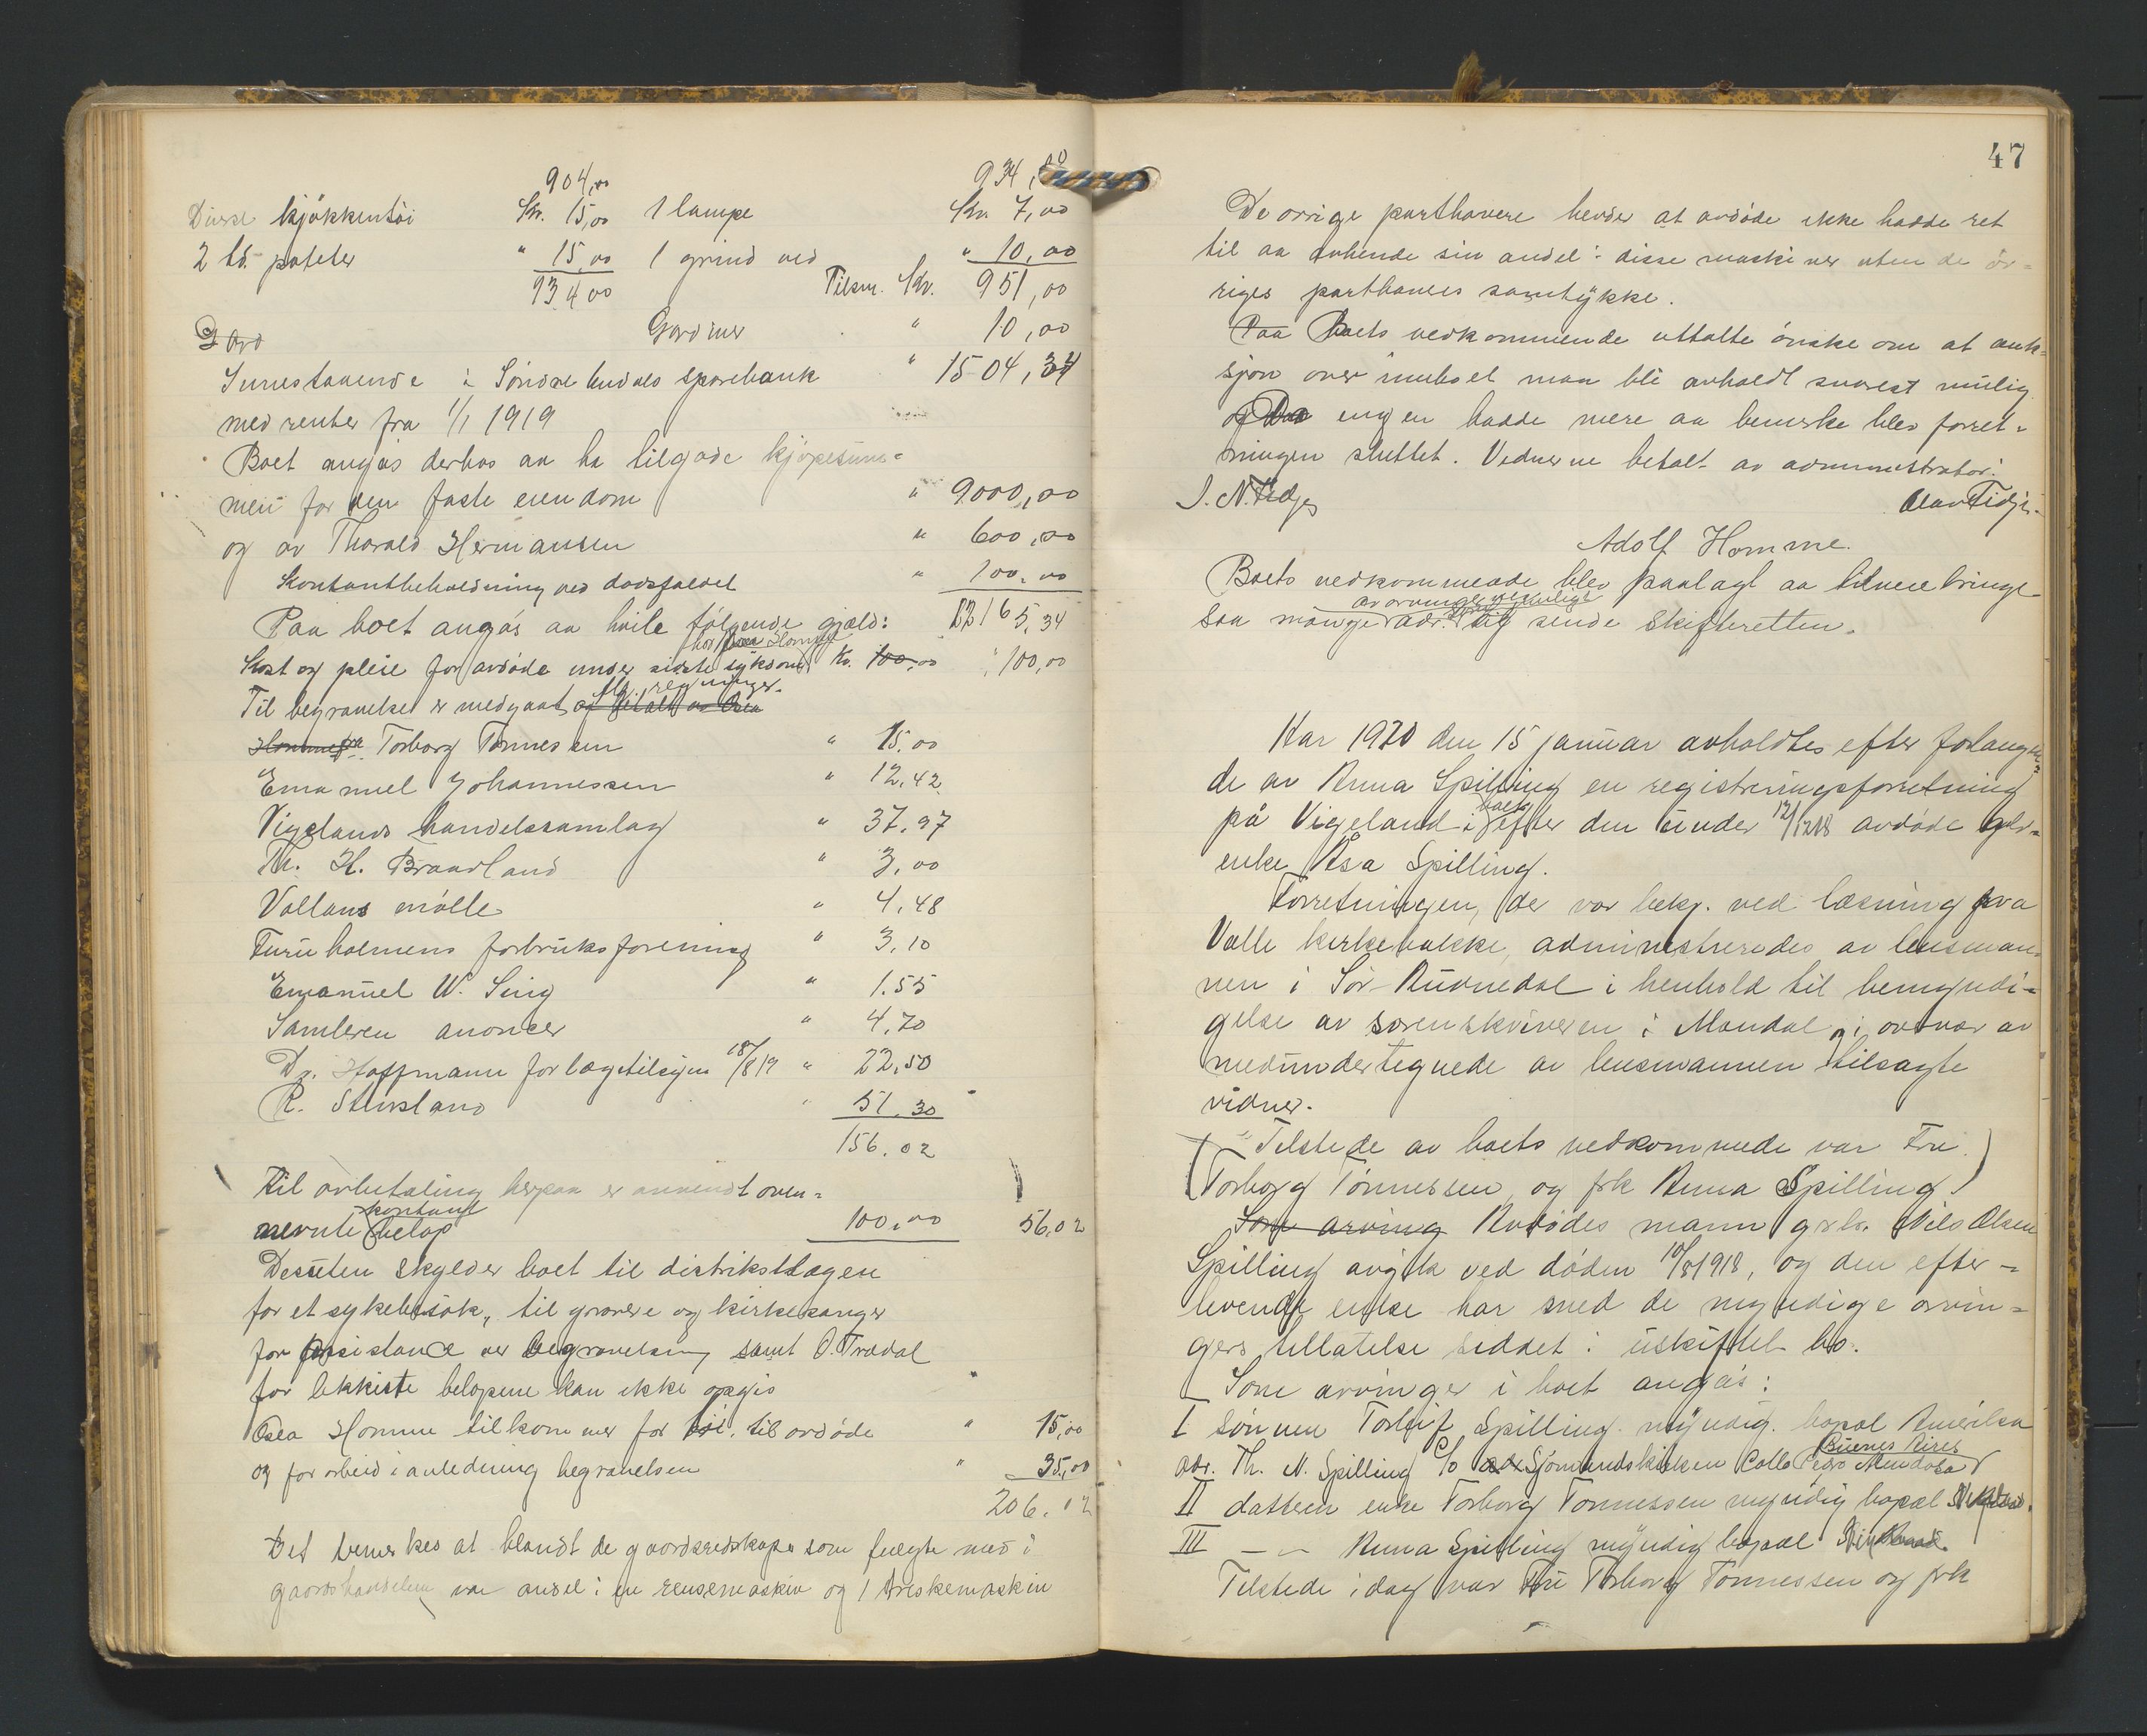 904,00 934,00
Diverse kjøkkentøi Kr. 15,00 1 lampe Kr. 7,00
2 td. poteter " 15,00 1 grind ved " 10,00
934,00 Tilsm. Kr. 951,00
Gardiner " 10,00
Innestaaende i Søndre Undals sparebank " 1504,34
med renter fra 1/1 1919
Boet angaas derhos aa ha tilgode kjøpesum=
men for den faste eiendom " 9000,00
og av Thorald Hermansen " 600,00
Kontantbeholdning ved dødsfaldet " 100,00
Paa boet angaas aa hvile følgende gjæld: 12165,34
hos Osea Homme
Kost og pleie for avdøde under sidste sykdom Kr. 100,00 " 100,00
flg. regninger.
Til begravelse er medgaat og betalt av Osea
Homme Torborg Tønnessen " 15,00
Emanuel Johannessen " 12,42
Vigelands handelssamlag " 37,97
Th. H. Braadland " 3,00
Vallans mølle " 4,48
Furuholmens forbruksforening " 3,10
Emanuel W. Sing " 1.55
Samleren anoncer " 4,70
Dr. Hoffmann for lægetilsyn 18/8 19 " 22,50
R. Stensland " 51,30
156,02
Til avbetaling herpaa er anvendt oven=
kontant
nevnte beløp 100,00 56,02
Desuten skylder boet til distriktslægen
for et sykebesøk, til gravere og kirkesanger
for assistance ved begravelsen, samt O. Trædal
for likkiste beløpene kan ikke opgis "
Osea Homme tilkommer for tøi til avdøde " 15,00
og for arbeid i anledning begravelsen " 35,00
206,02
Det bemerkes at blandt de gaardsredskaper som fulgte med i
gaardshandelen var andel i en rensemaskin og 1 treskemaskin
47
De øvrige parthavere hevder at avdøde ikke hadde ret
til aa avhende sin andel i disse maskiner uten de øv=
riges parthaveres samtykke.
Paa Boets vedkommende uttalte ønske om at auk=
sjon over innboet maa bli avholdt snarest mulig
og Da ingen hadde mere aa bemerke blev forret=
ningen sluttet. Vidnerne betalt av administrator.
J. N. Fidje Olav Fidje.
Adolf Homme.
Boets vedkommende blev paalagt aa tilveiebringe
av arvinger
saa mange adr. og sende Skifteretten.
Aar 1920 den 15 januar avholdtes efter forlangen=
de av Anna Spilling en registreringsforretning
boet
på Vigeland i efter den under 12/12 18 avdøde gbr.
enke Åsa Spilling.
Forretningen, der var bekj. ved læsning paa
Valle kirkebakke, administreredes av lensman=
nen i Sør-Audnedal i henhold til bemyndi=
gelse av sorenskriveren i Mandal og i overvær av
medundertegnede av lensmannen tilsagte
vidner.
(Tilstede av boets vedkommende var Fru
Torborg Tønnessen og frk Anna Spilling.)
Som arving Avdødes mann gbr. Nils Olsen
Spilling avgik ved døden 10/8 1918, og den efter=
levende enke har med de myndige arvin=
gers tillatelse siddet i uskiftet bo.
Som arvinger i boet angaas:
I sønnen Torleif Spilling myndig. bopæl Amerika
Buenos Aires
adr. Th. N. Spilling c/o adr Sjømandskirken Calle Pedro Mendoza
II datteren enke Torborg Tønnessen myndig bopæl Vigeland.
III — " — Anna Spilling myndig bopæl
Tilstede i dag var Fru Torborg Tønnessen og frk